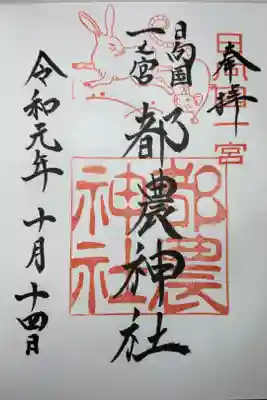 奉拝
日向國一宮
日向国
一之宮
都農神社
都農
神社
令和元年十月十四日